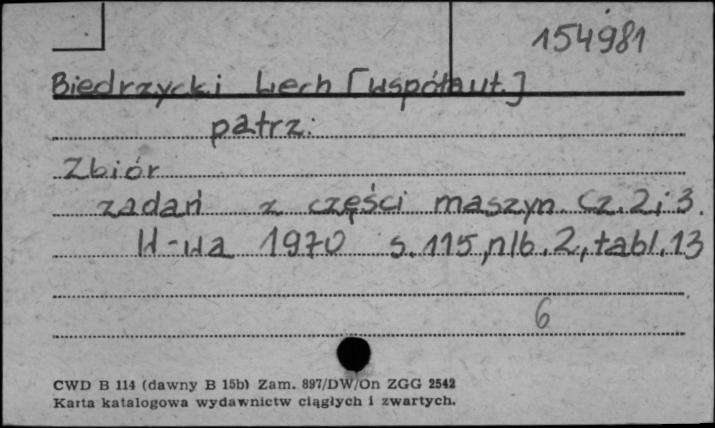 154981
Biedrzycki Lech [współaut.]
patrz:
Zbiór
zadań z części maszyn. Cz. 2 i 3.
W-wa 1970 s. 115, nlb. 2, tabl. 13
6
CWD B 114 (dawny B 15b) Zam. 897/DW/On ZGG 2542
Karta katalogowa wydawnictw ciągłych i zwartych.